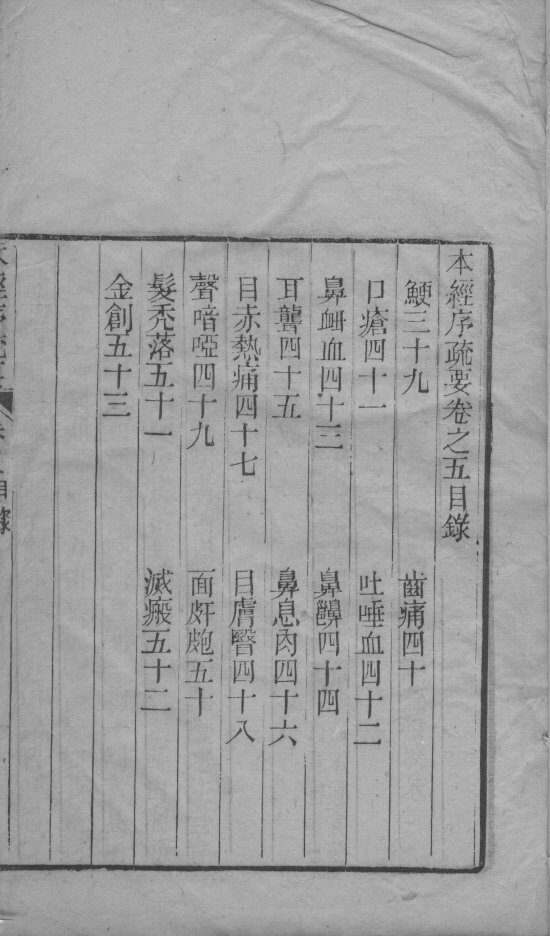 本經序疏要卷之五目錄
鯁三十九　齒痛四十
口瘡四十一　吐唾血四十二
鼻衄血四十三　鼻齆四十四
耳聾四十五　鼻息肉四十六
目赤熱痛四十七　目膚瞖四十八
聲喑啞四十九　面皯皰五十
髮禿落五十一　滅瘢五十二
金創五十三
本經序疏要 目錄